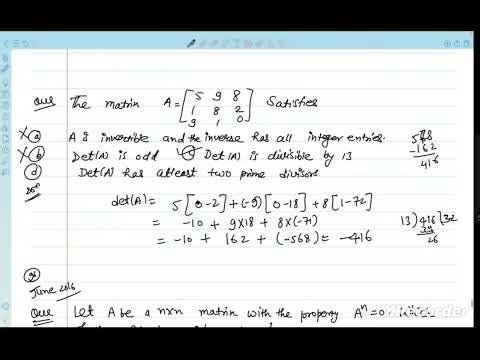 Que The matrix A = [5 9 8
1 8 2
9 1 0] Satisfies
X (a) A is invertible and the inverse has all integer entries.
X (b) Det(A) is odd (c) Det(A) is divisible by 13
(d) Det(A) has atleast two prime divisors
det(A) = 5[0-2] + (-9)[0-18] + 8[1-72]
= -10 + 9×18 + 8×(-71)
= -10 + 162 + (-568) = -416
-162
416
13) 416 (32
39
26
June 2016
Que Let A be a n×n matrix with the property Aⁿ=0